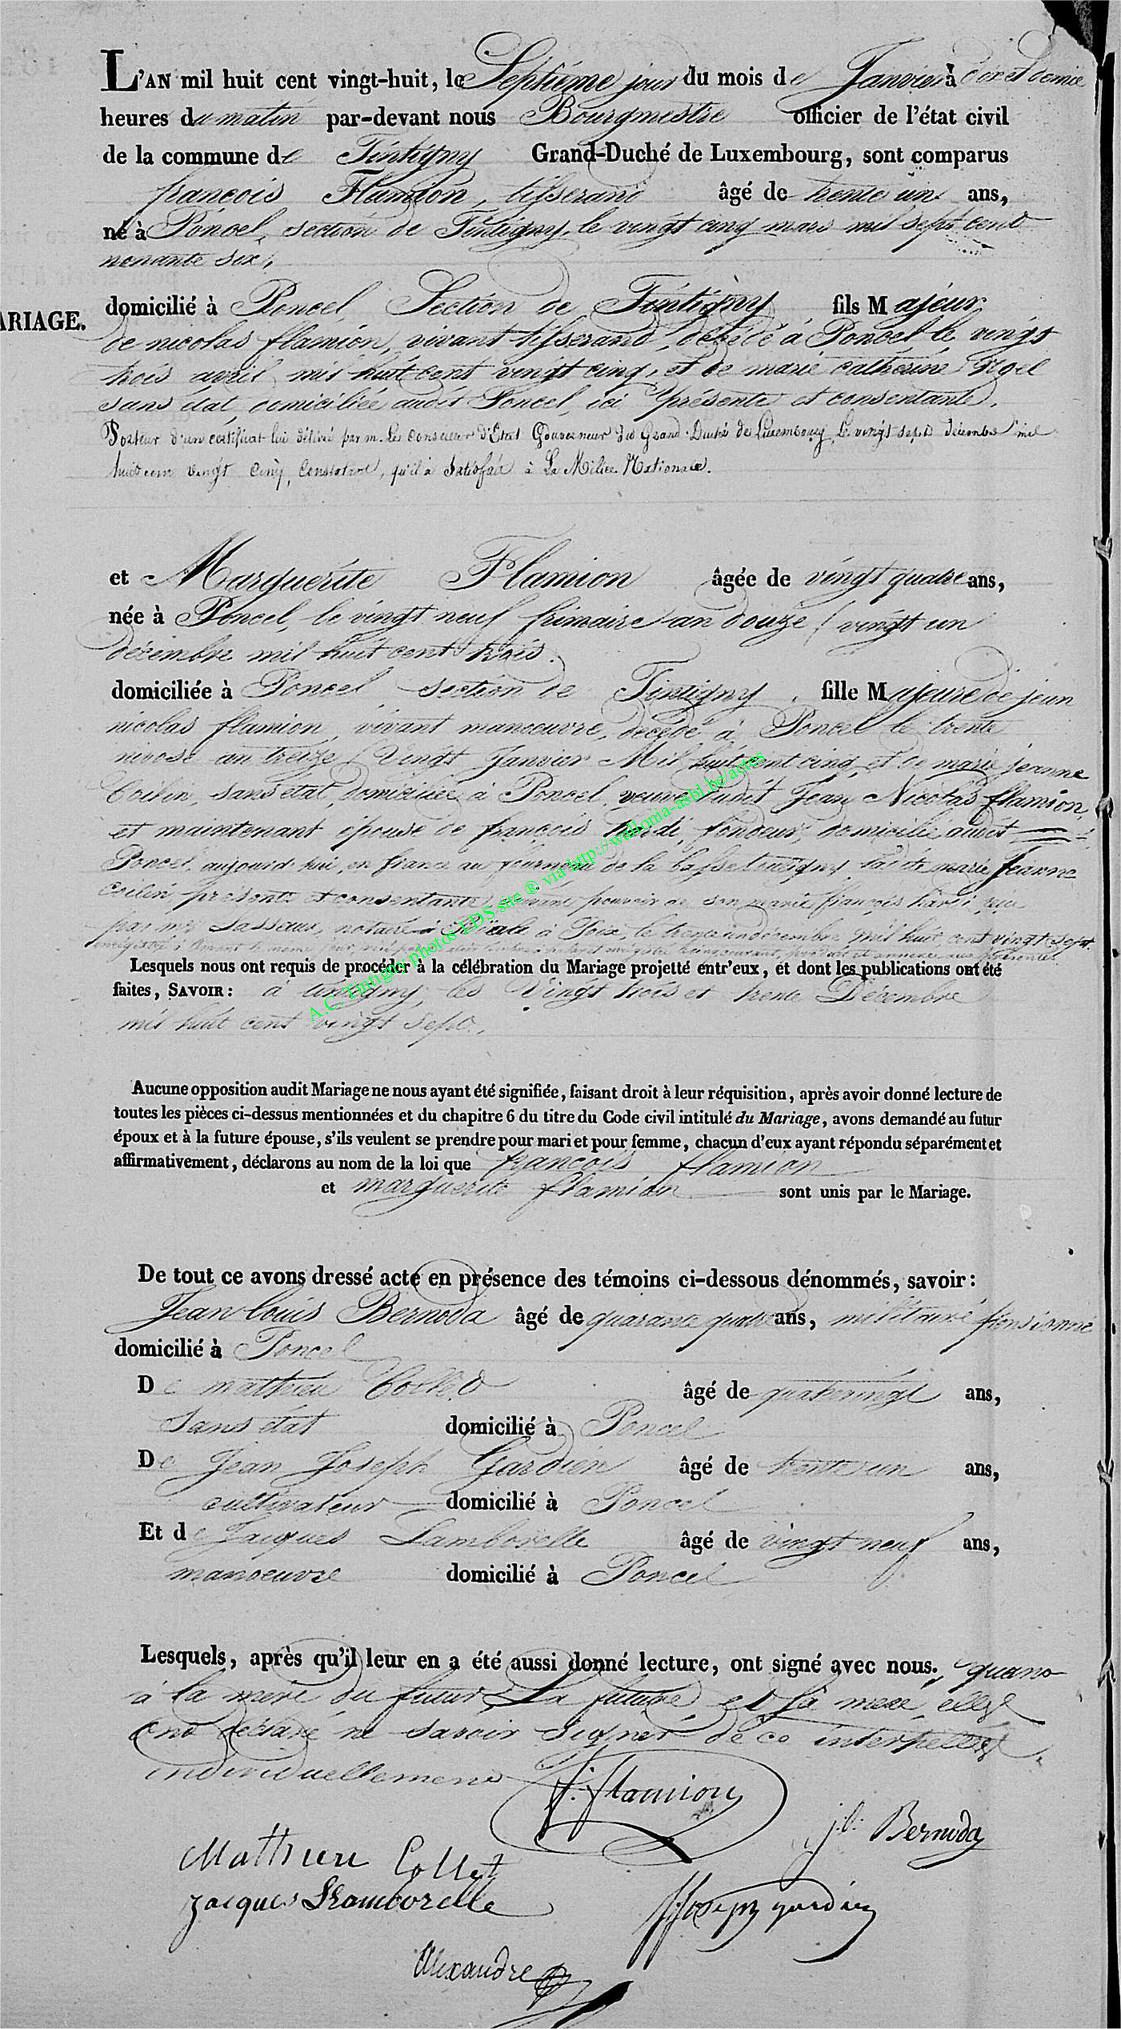 L'AN mil huit cent vingt-huit, le Septième jour du mois de Janvier à dix et demie
heures du matin par-devant nous Bourgmestre officier de l'état civil
de la commune de Tintigny Grand-Duché de Luxembourg, sont comparus
françois Flamion, tisserand âgé de trente un ans,
né à Poncel, section de Tintigny, le vingt cinq mars mil sept cent
nonante six,
domicilié à Poncel Section de Tintigny fils Majeur
ARIAGE.
de nicolas flamion, vivant tisserand, décédé à Poncel le vingt
trois avril mil huit cent vingt cinq, et de marie catherine Ngel
sans état, domiciliée audit Poncel, ici présente et consentante,
Porteur d'un certificat lui délivré par m. Le Conseiller d'Etat Gouverneur du Grand-Duché de Luxembourg, Le vingt sept décembre mil
huit cent vingt cinq, Constatant, qu'il a Satisfait à La Milice Nationale.
et Marguerite Flamion âgée de vingt quatre ans,
née à Poncel, le vingt neuf frimaire an douze / vingt un
décembre mil huit cent trois.
domiciliée à Poncel section de Tintigny, fille Majeure de jean
nicolas flamion, vivant manoeuvre, décédé à Poncel le trente
nivose an treize / Vingt Janvier Mil huit cent cinq, et de marie jeanne
Collin, sans état, domiciliée à Poncel, veuve dudit Jean Nicolas flamion,
et maintenant épouse de françois hardi, fondeur, domicilié audit
Poncel, aujourd'hui, en france au fourneau de la ladite marie Jeanne
Collin présente et consentante, pouvoir de son marie françois hardi
par me Lasseaux, notaire à le trente un décembre mil huit cent vingt sept
Lesquels nous ont requis de procéder à la célébration du Mariage projetté entr'eux, et dont les publications ont été
faites, SAVOIR : à tintigny, les Vingt trois et trente Décembre
mil huit cent vingt sept,
Aucune opposition audit Mariage ne nous ayant été signifiée, faisant droit à leur réquisition, après avoir donné lecture de
toutes les pièces ci-dessus mentionnées et du chapitre 6 du titre du Code civil intitulé du Mariage, avons demandé au futur
époux et à la future épouse, s'ils veulent se prendre pour mari et pour femme, chacun d'eux ayant répondu séparément et
affirmativement, déclarons au nom de la loi que françois flamion
et marguerite flamion sont unis par le Mariage.
De tout ce avons dressé acte en présence des témoins ci-dessous dénommés, savoir :
Jean louis Bernoda âgé de quarante quatre ans, militaire pensionné
domicilié à Poncel
De mathieu Collet âgé de quatrevingt ans,
Sans état domicilié à Poncel
De Jean Joseph Gardien âgé de trente un ans,
cultivateur domicilié à Poncel
Et de Jacques Lamborelle âgé de vingt neuf ans,
manoeuvre domicilié à Poncel
Lesquels, après qu'il leur en a été aussi donné lecture, ont signé avec nous, quand
à la mère du futur, La future et Sa mere, elles
ont déclaré ne savoir Signer de ce interpellées
individuellement
f. flamion
j.l. Bernoda
Mathieu Collet
Jacques Lamborelle
J Joseph gardien
Alexandre
A.C. Tintigny photos LDS site ® via http://wallonia-asbl.be/actes